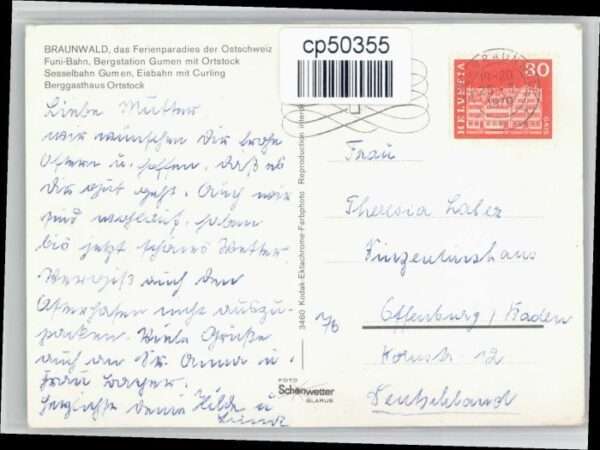 BRAUNWALD, das Ferienparadies der Ostschweiz
Funi-Bahn, Bergstation Gumen mit Ortstock
Sesselbahn Gumen, Eisbahn mit Curling
Berggasthaus Ortstock
cp50355
HELVETIA
30
1970
Liebe Mutter
wir wünschen Dir frohe
Ostern u. hoffen, daß es
Dir gut geht. Auch wir
sind wohlauf, haben
bis jetzt schönes Wetter.
Vergiß auch den
Osterhasen nicht auszu-
packen. Viele Grüße
auch an Sr. Anna u.
Frau
Herzlichst deine Hilde u
3460 Kodak-Ektachrome-Farbphoto Reproduction
Frau
Theresia Laber
Vinzentiushaus
Offenburg / Baden
Kornstr. 12
Deutschland
FOTO
Schönwetter
GLARUS